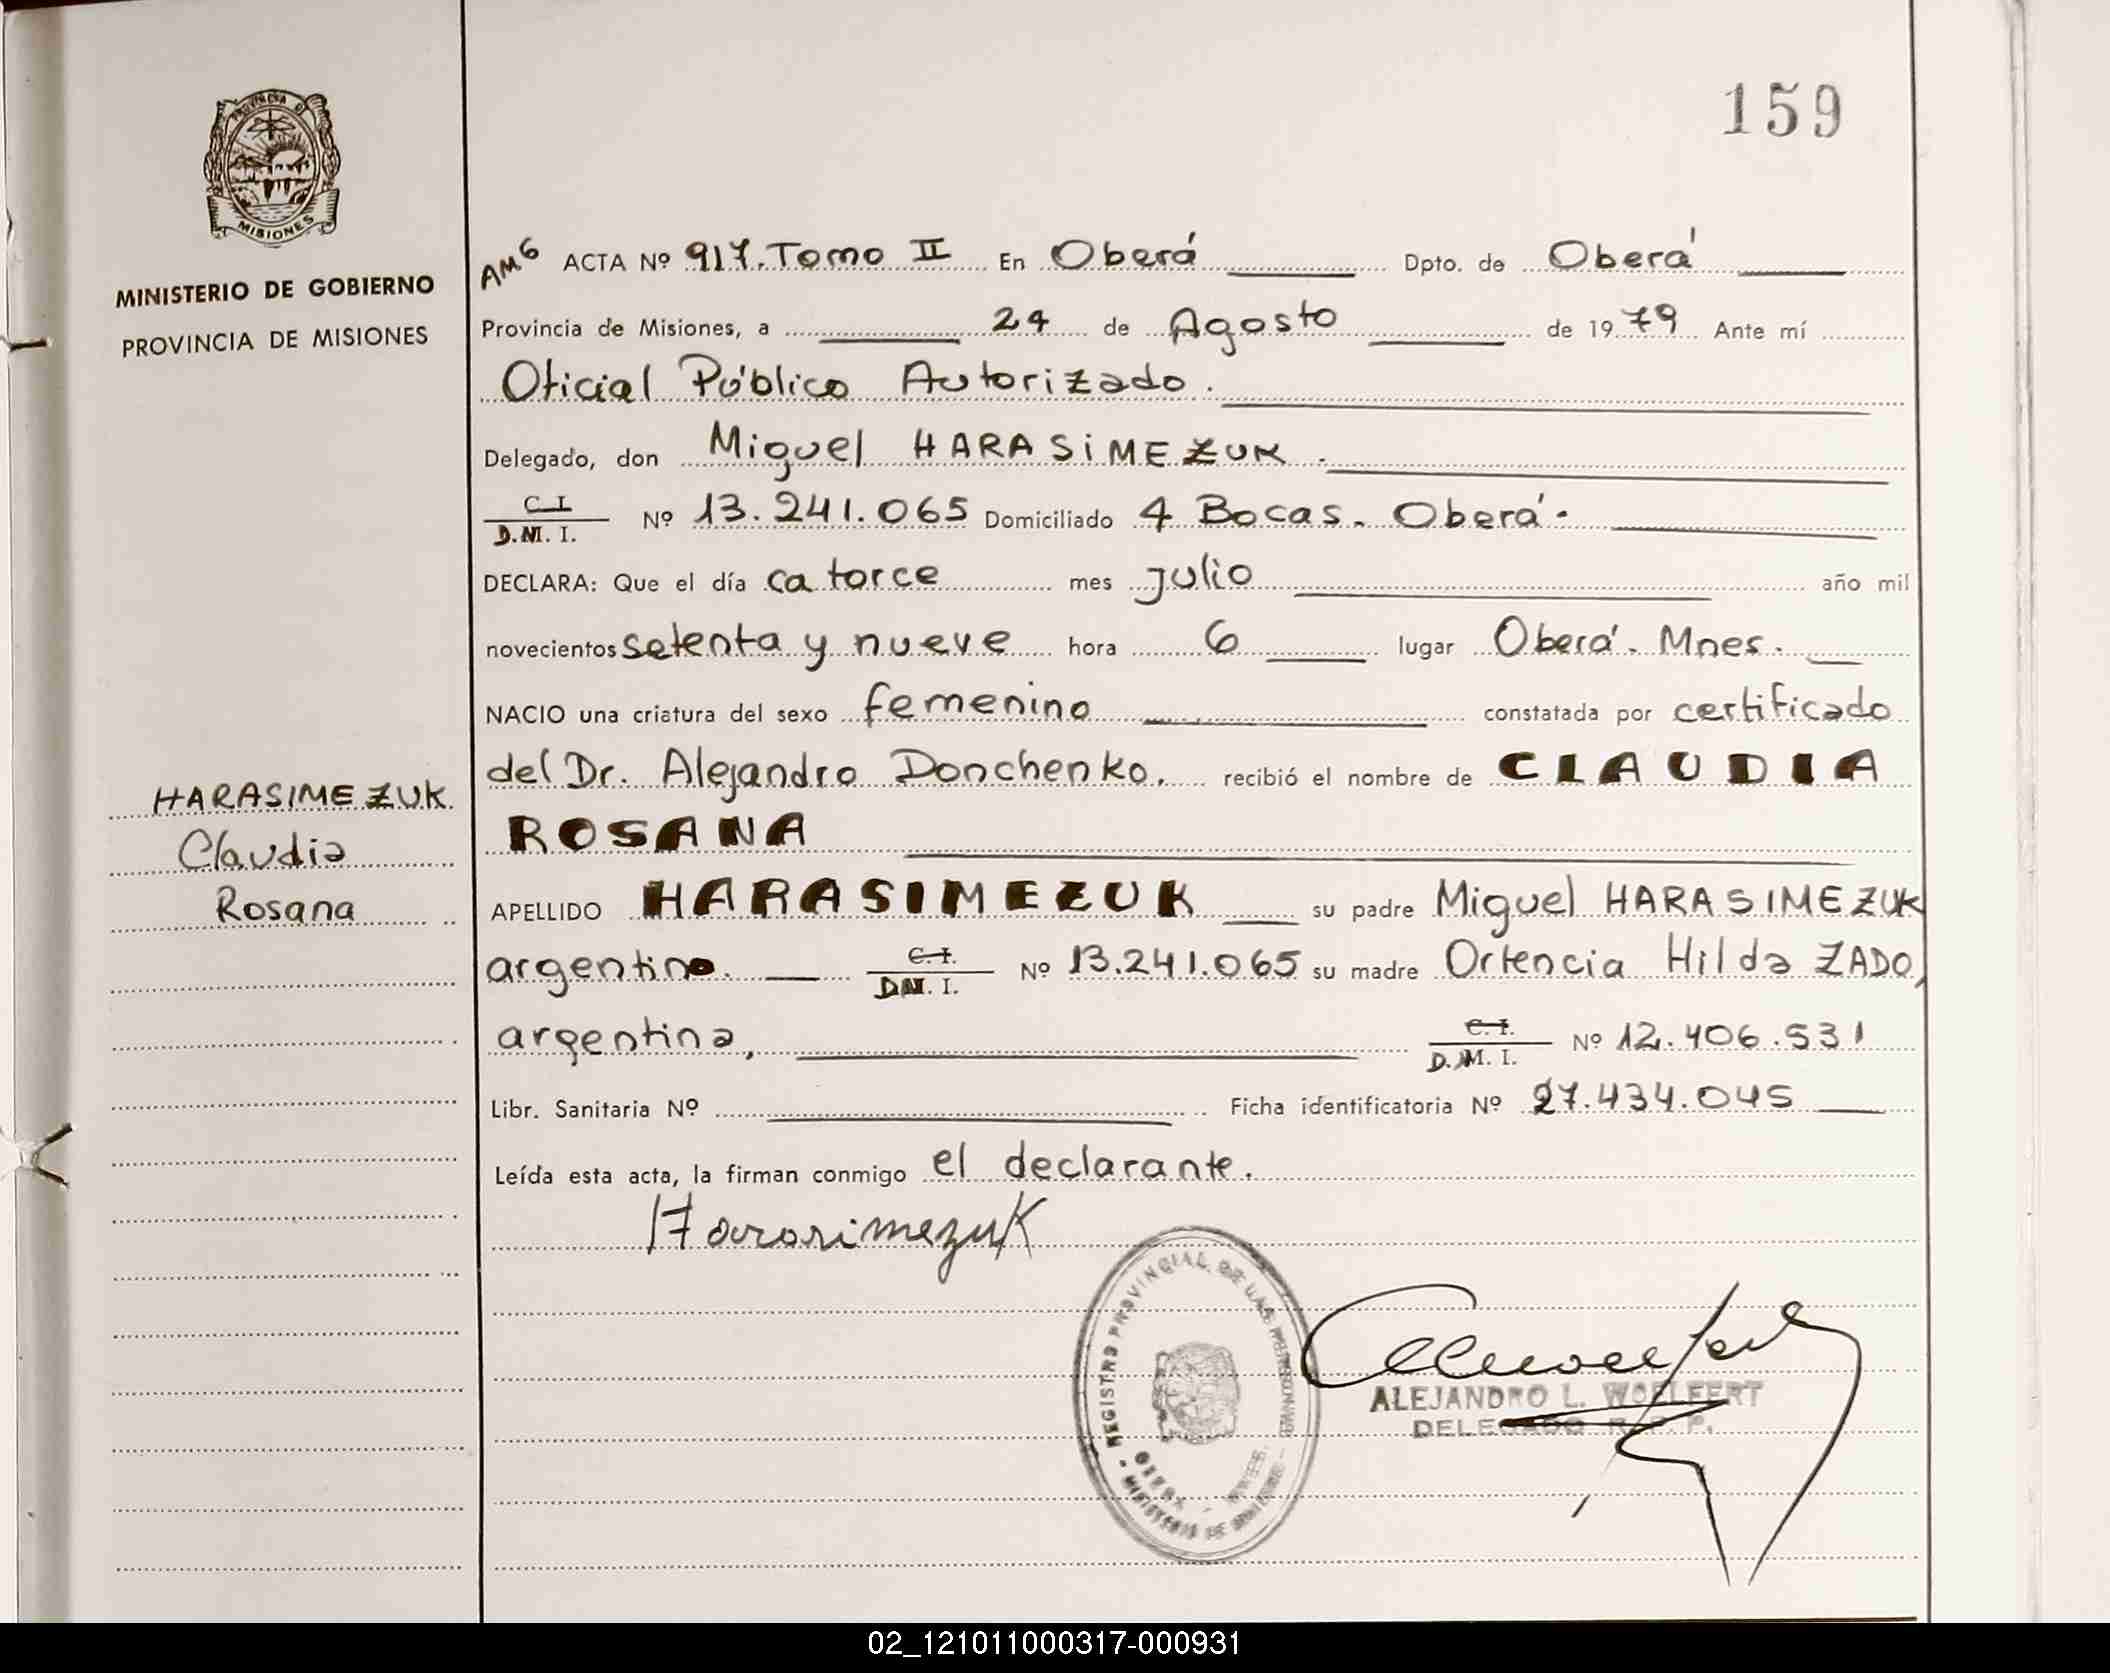 159
PROVINCIA DE
MISIONES
MINISTERIO DE GOBIERNO
PROVINCIA DE MISIONES
HARASIMEZUK
Claudia
Rosana
AMG ACTA Nº 917. Tomo II En Oberá Dpto. de Oberá
Provincia de Misiones, a 24 de Agosto de 1979 Ante mí
Oficial Público Autorizado.
Delegado, don Miguel HARASIMEZUK.
C. I.
D.N. I. Nº 13.241.065 Domiciliado 4 Bocas. Oberá.
DECLARA: Que el día catorce mes julio año mil
novecientos setenta y nueve hora 6 lugar Oberá. Mnes.
NACIO una criatura del sexo femenino constatada por certificado
del Dr. Alejandro Donchenko. recibió el nombre de CLAUDIA
ROSANA
APELLIDO HARASIMEZUK su padre Miguel HARASIMEZUK
argentino. C. I. D.N. I. Nº 13.241.065 su madre Ortencia Hilda ZADO,
argentina, C. I. D.N. I. Nº 12.406.531
Libr. Sanitaria Nº Ficha identificatoria Nº 27.434.045
Leída esta acta, la firman conmigo el declarante.
Harasimezuk
REGISTRO PROVINCIAL DE LAS PERSONAS
MINISTERIO DE GOBIERNO
ALEJANDRO L. WOELFERT
DELEGADO R. P. P.
02_121011000317-000931